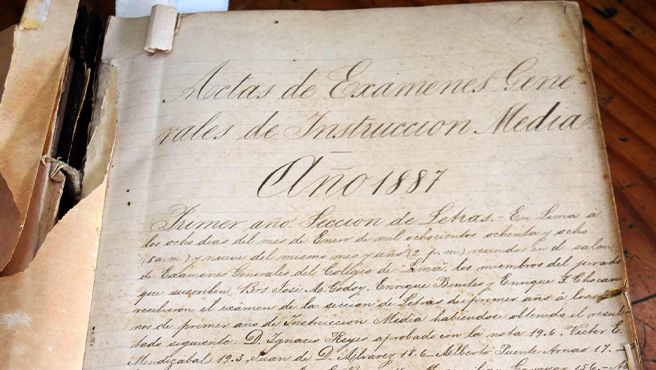 Actas de Exámenes Gene-
rales de Instruccion Media.
Año 1887
Primer año Seccion de Letras. - En Lima á
los ocho dias del mes de Enero de mil ochocientos ochenta y ocho
(8 a.m) y nueve del mismo mes y año (2 p.m) reunidos en el salon
de Exámenes Generales del Colegio de Lima, los miembros del jurado
que suscriben, Drs Jose M. Godoy, Enrique Benites y Enrique F. Chocano
recibieron el exámen de la seccion de Letras de primer año á los
nos de primer año de Instruccion Media habiendose obtenido el resul-
tado siguiente: D. Ignacio Reyes aprobado con la nota 19.6, Victor E.
Mendizabal 19.3, Juan de D. Alvarez 18.6 - Alberto Puente Arnao 17. -